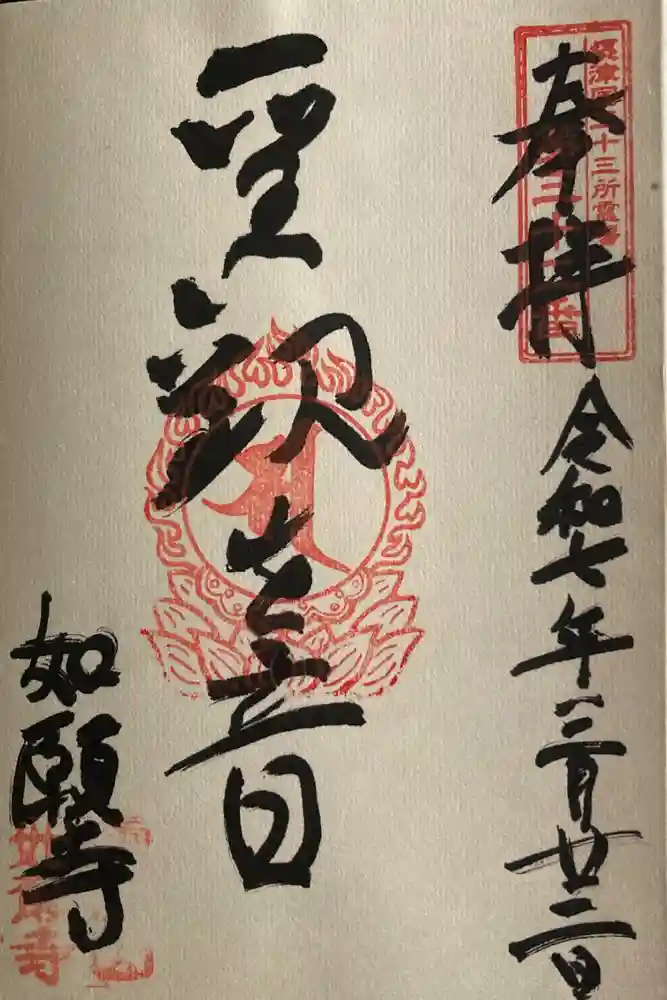 奉拝
令和七年三月廿二日
聖観世音
如願寺
津国三十三所霊場